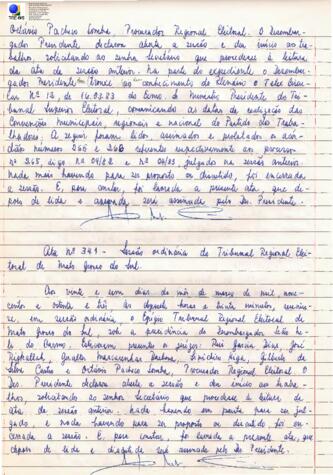 Octávio Pacheco Lomba, Procurador Regional Eleitoral. O Desembar-
gador Presidente declarou aberta a sessão e deu início aos tra-
balhos, solicitando ao senhor Secretário que procedesse à leitura
da ata da sessão anterior. Na parte do expediente o Desembar-
gador Presidente trouxe ao conhecimento do Plenário o Telex Circu-
lar Nº 12, de 16.03.83 do Exmo. Sr. Ministro Presidente do Tri-
bunal Superior Eleitoral, comunicando as datas de realização das
Convenções municipais, regionais e nacional do Partido dos Traba-
lhadores. A seguir foram lidos, assinados e protelados os acór-
dãos números 265 e 266 referentes respectivamente aos processos
nº 265, digo nº 04/82 e nº 04/83, julgados na sessão anterior.
Nada mais havendo para ser proposto ou discutido, foi encerrada
a sessão. E, para constar, foi lavrada a presente ata, que de-
pois de lida e aprovada, será assinada pelo Sr. Presidente.
Ata nº 341 - Sessão ordinária do Tribunal Regional Elei-
toral de Mato Grosso do Sul
Aos vinte e um dias do mês de março de mil, nove-
centos e oitenta e três, às dezoito horas e trinta minutos, reuniu-
se, em sessão ordinária, o Egrégio Tribunal Regional Eleitoral de
Mato Grosso do Sul, sob a presidência do Desembargador Leão Ne-
to do Carmo. Estiveram presentes os juízes: Rui Garcia Dias, José
Rizkallah, Gualter Mascarenhas Barbosa, Higa, Gilberto da
Silva Castro e Octávio Pacheco Lomba, Procurador Regional Eleitoral. O
Des. Presidente declarou aberta a sessão e deu início aos traba-
lhos, solicitando ao senhor Secretário que procedesse à leitura da
ata da sessão anterior. Nada havendo em pauta para ser jul-
gado, e nada havendo para ser proposto ou discutido foi en-
cerrada a sessão. E, para constar, foi lavrada a presente ata, que
depois de lida e será assinada pelo Sr. Presidente.